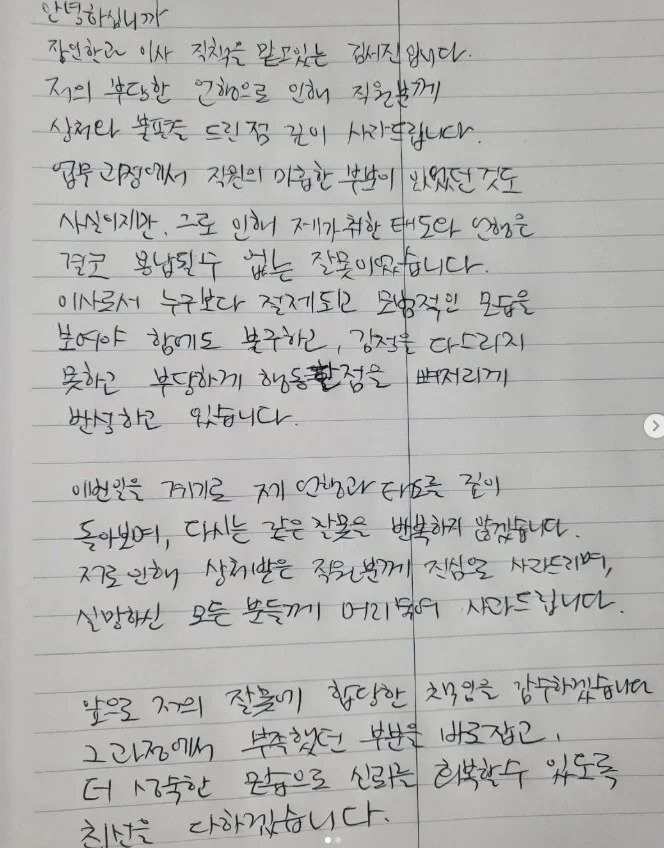 안녕하십니까
장인한과 이사 직책을 맡고있는 김서진입니다.
저의 부당한 언행으로 인해 직원분께
상처와 불편을 드린 점 깊이 사과드립니다.
업무 과정에서 직원의 미흡한 부분이 있었던 것도
사실이지만, 그로 인해 제가 취한 태도와 언행은
결코 용납될 수 없는 잘못이었습니다.
이사로서 누구보다 절제되고 모범적인 모습을
보여야 함에도 불구하고, 감정을 다스리지
못하고 부당하게 행동한점을 뼈저리게
반성하고 있습니다.
이번일을 계기로 제 언행과 태도를 깊이
돌아보며, 다시는 같은 잘못을 반복하지 않겠습니다.
저로 인해 상처받은 직원분께 진심으로 사과드리며,
실망하신 모든 분들께 머리숙여 사과드립니다.
앞으로 저의 잘못에 합당한 책임을 감수하겠습니다
그 과정에서 부족했던 부분을 바로잡고,
더 성숙한 모습으로 신뢰를 회복할수 있도록
최선을 다하겠습니다.